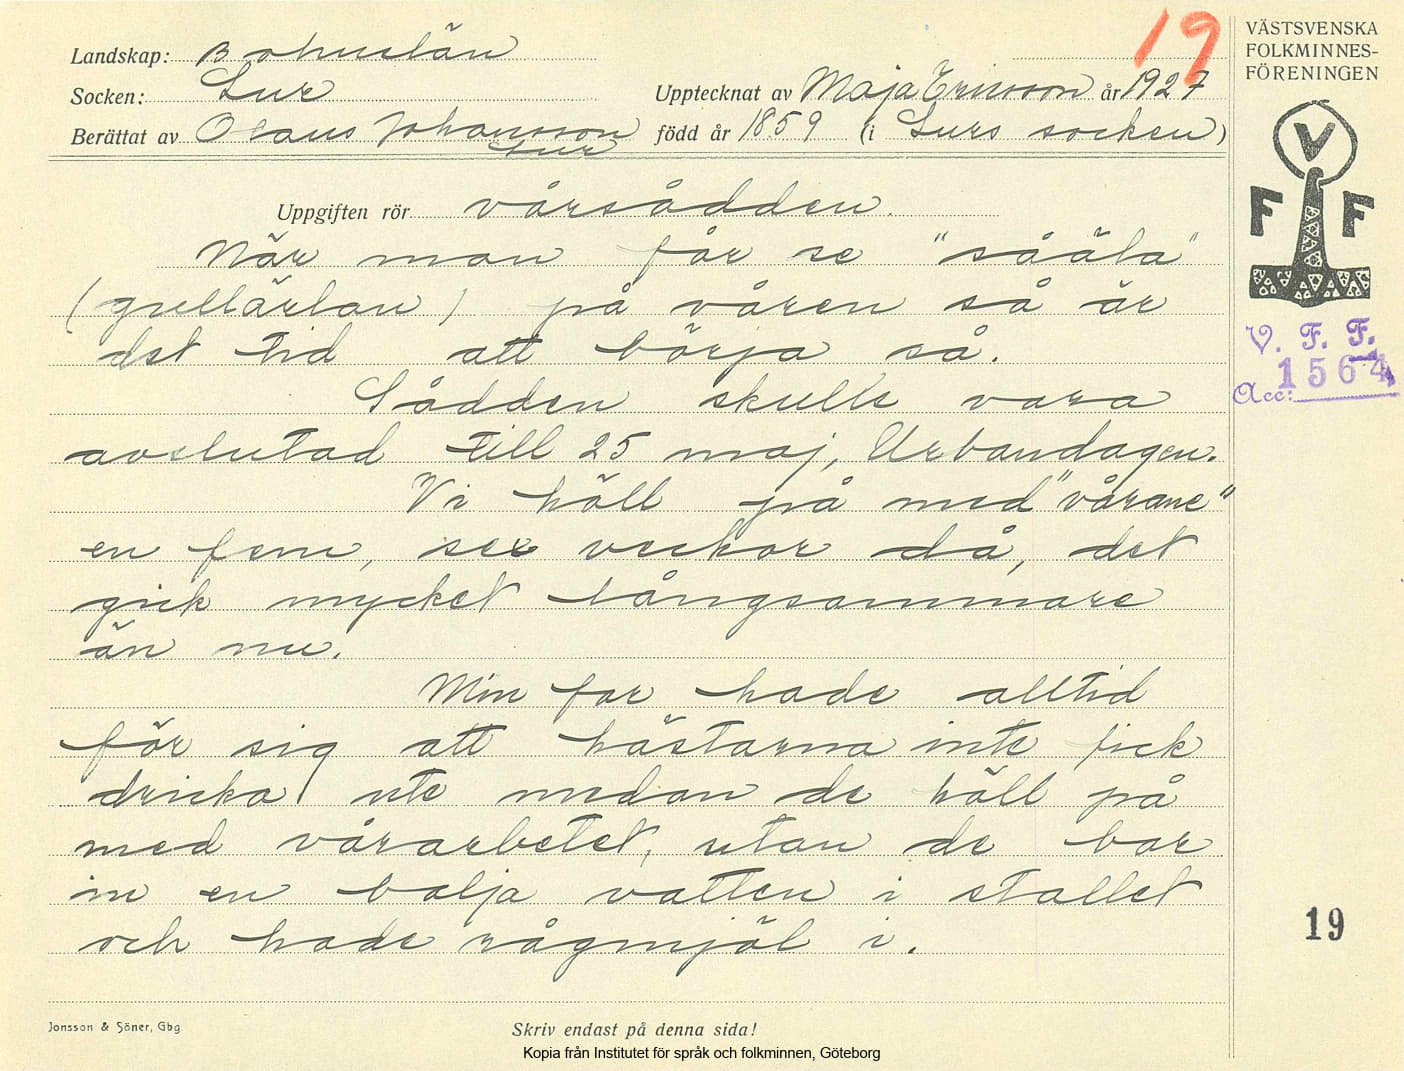 19
Landskap: Bohuslän
Socken: Lur
Upptecknat av Maja Ericsson år 1927
Berättat av Olaus Johansson född år 1859 (i Lurs socken)
Lur
Uppgiften rör vårsådden.
När man får se "sååla"
(gullärlan) på våren så är
det tid att börja så.
Sådden skulle vara
avslutad till 25 maj, Urbandagen.
Vi höll på med "vårane"
en fem, sex veckor då, det
gick mycket långsammare
än nu.
Min far hade alltid
för sig att hästarna inte fick
dricka ute medan de höll på
med vårarbetet, utan de bar
in en balja vatten i stallet
och hade rågmjöl i.
Jonsson & Söner, Gbg
Skriv endast på denna sida!
Kopia från Institutet för språk och folkminnen, Göteborg
VÄSTSVENSKA
FOLKMINNES-
FÖRENINGEN
V
F F
V. F. F.
Acc: 1564
19